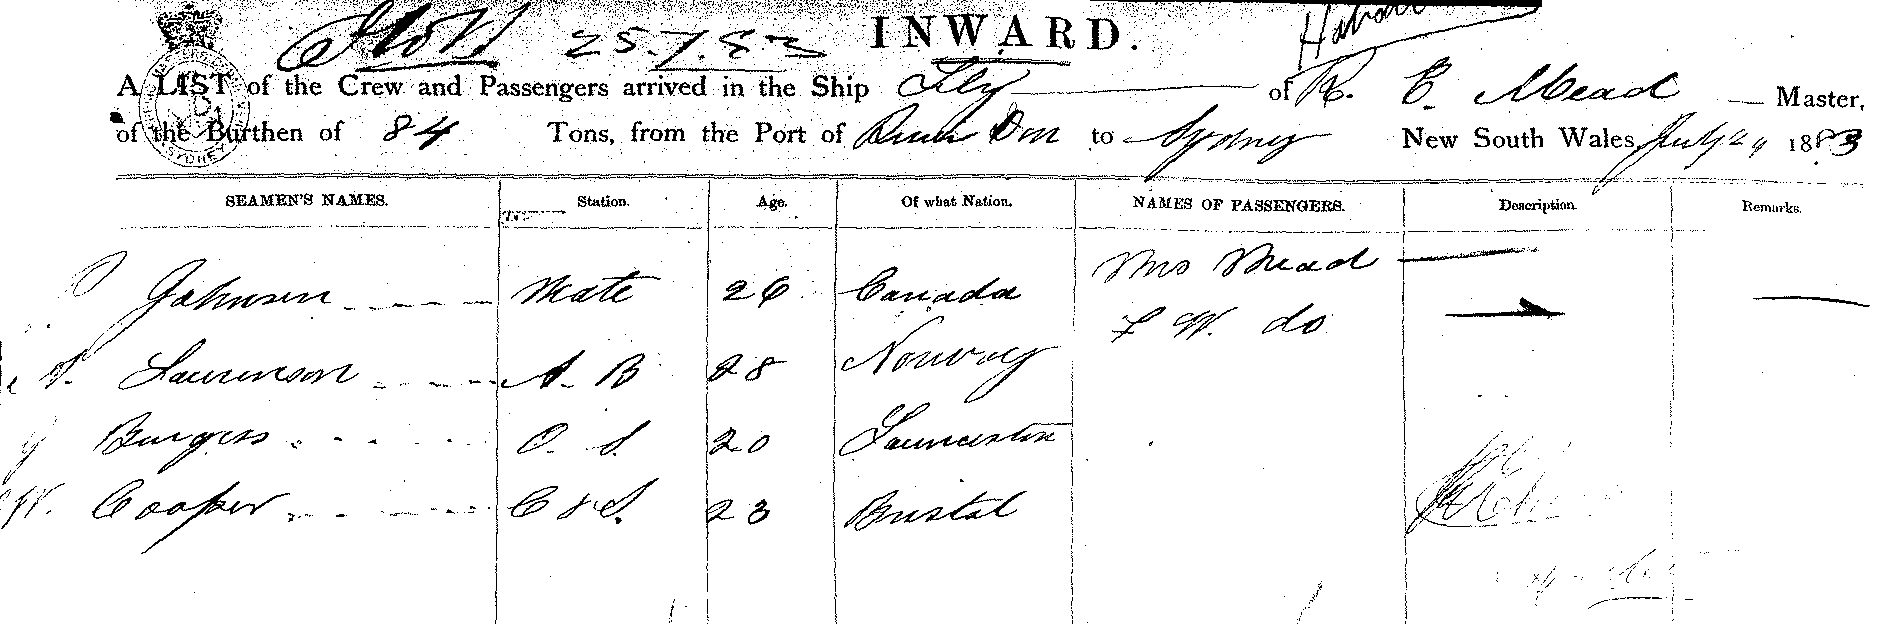 25.7.83 INWARD.
A LIST of the Crew and Passengers arrived in the Ship Fly of R. E. Mead Master,
of the Burthen of 84 Tons, from the Port of River Don to Sydney New South Wales, July 24 1883
SEAMEN'S NAMES. Station. Age. Of what Nation. NAMES OF PASSENGERS. Description. Remarks.
Mrs Mead
Johnson Mate 26 Canada
F W. do
Laurenson A. B 28 Norway
Burgess O. S. 20 Launceston
W. Cooper C & S. 23 Bristol